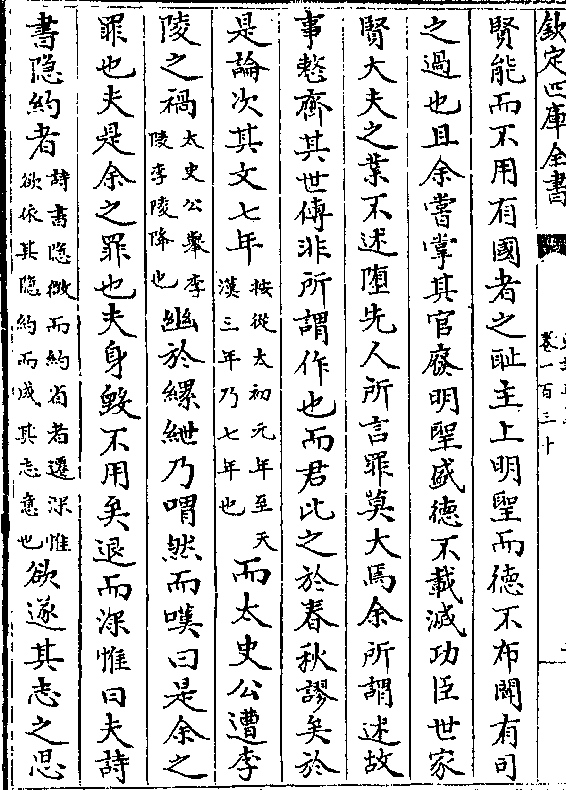 欽定四庫全書
卷一百三十
賢能而不用有國者之耻主上明聖而德不布聞有司
之過也且余嘗掌其官廢明聖盛德不載滅功臣世家
賢大夫之業不述墮先人所言罪莫大焉余所謂述故
事整齊其世傳非所謂作也而君比之於春秋謬矣於
是論次其文七年
按從太初元年至天
漢三年乃七年也
而太史公遭李
陵之禍
太史公舉李
陵李陵降也
幽於縲紲乃喟然而嘆曰是余之
罪也夫是余之罪也夫身毀不用矣退而深惟曰夫詩
書隐約者
詩書隐微而約省者遷深惟
欲依其隐約而成其志意也
欲遂其志之思